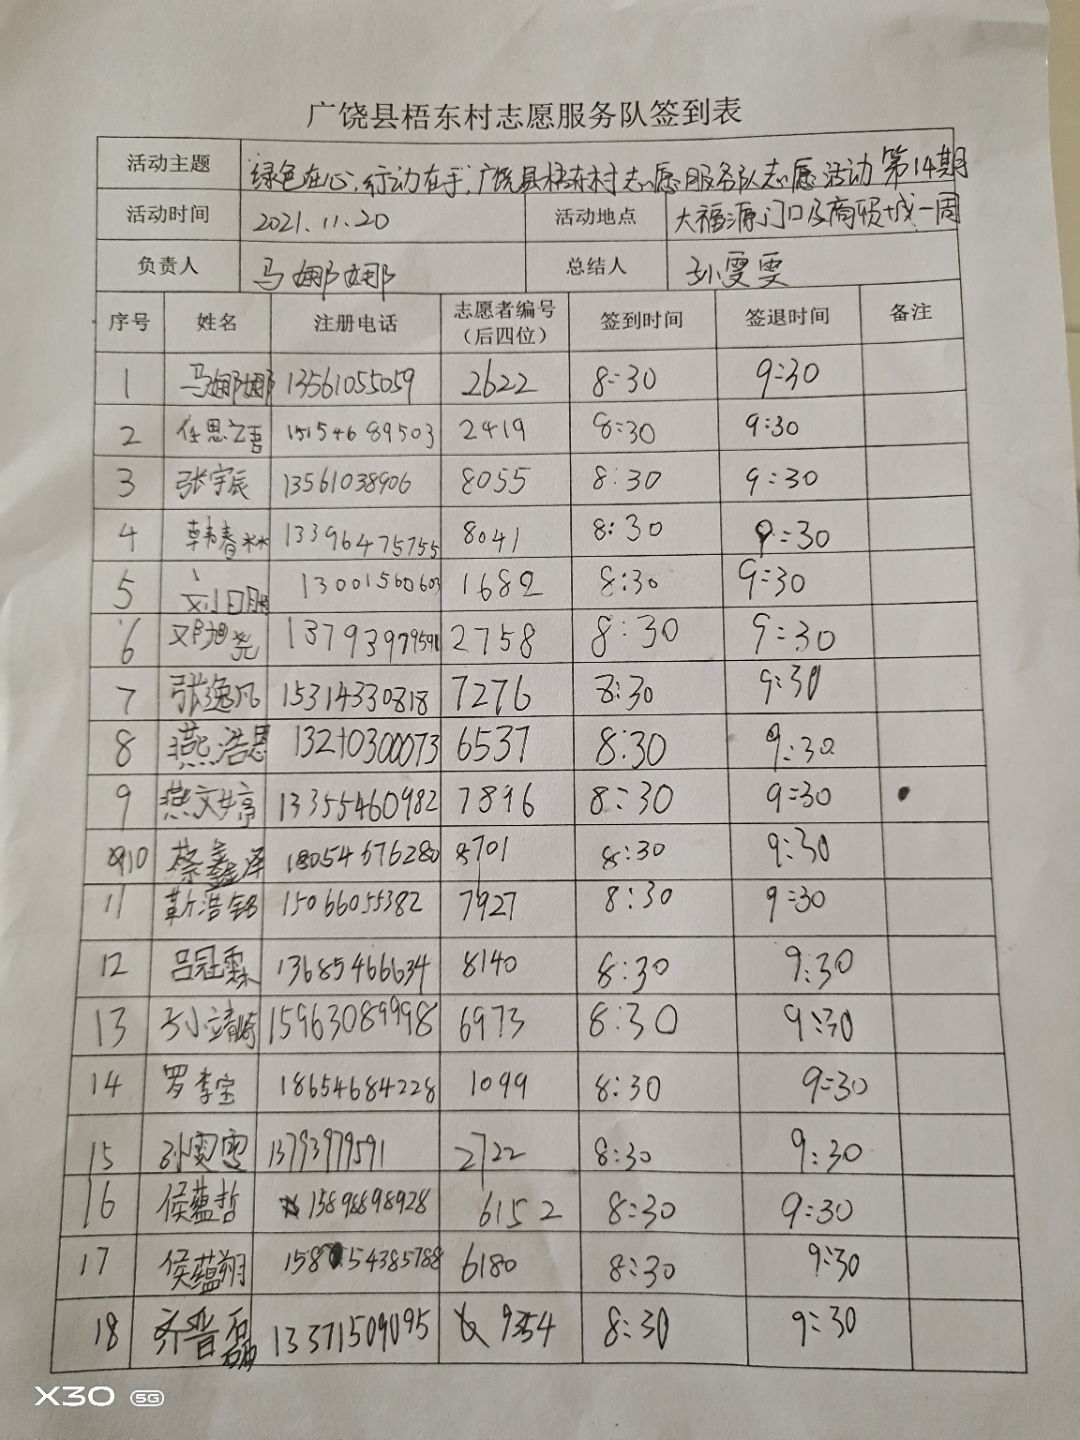 广饶县梧东村志愿服务队签到表
活动主题 绿色在心,行动在手,广饶县梧东村志愿服务队志愿活动第14期
活动时间 2021.11.20 活动地点 大福源门口及商贸城一周
负责人 马娜娜 总结人 孙雯雯
序号 姓名 注册电话 志愿者编号(后四位) 签到时间 签退时间 备注
1 马娜娜 13561055059 2622 8:30 9:30
2 任思语 15154689503 2419 8:30 9:30
3 张宇辰 13561038906 8055 8:30 9:30
4 韩春林 13396475755 8041 8:30 9:30
5 13001560603 1682 8:30 9:30
6 邓旭尧 13793979591 2758 8:30 9:30
7 张逸凡 15314330818 7276 8:30 9:30
8 燕浩恩 13210300073 6537 8:30 9:30
9 燕文婷 13355460982 7896 8:30 9:30
10 蔡鑫泽 18054676280 8701 8:30 9:30
11 靳浩铭 15066055382 7927 8:30 9:30
12 吕冠霖 13685466634 8140 8:30 9:30
13 孙靖崎 15963089998 6973 8:30 9:30
14 罗李宝 18654684228 1099 8:30 9:30
15 孙雯雯 13793979591 2722 8:30 9:30
16 侯蕴哲 15898898928 6152 8:30 9:30
17 侯蕴翔 6180 8:30 9:30
18 齐晋磊 13371509095 9354 8:30 9:30
X30 5G